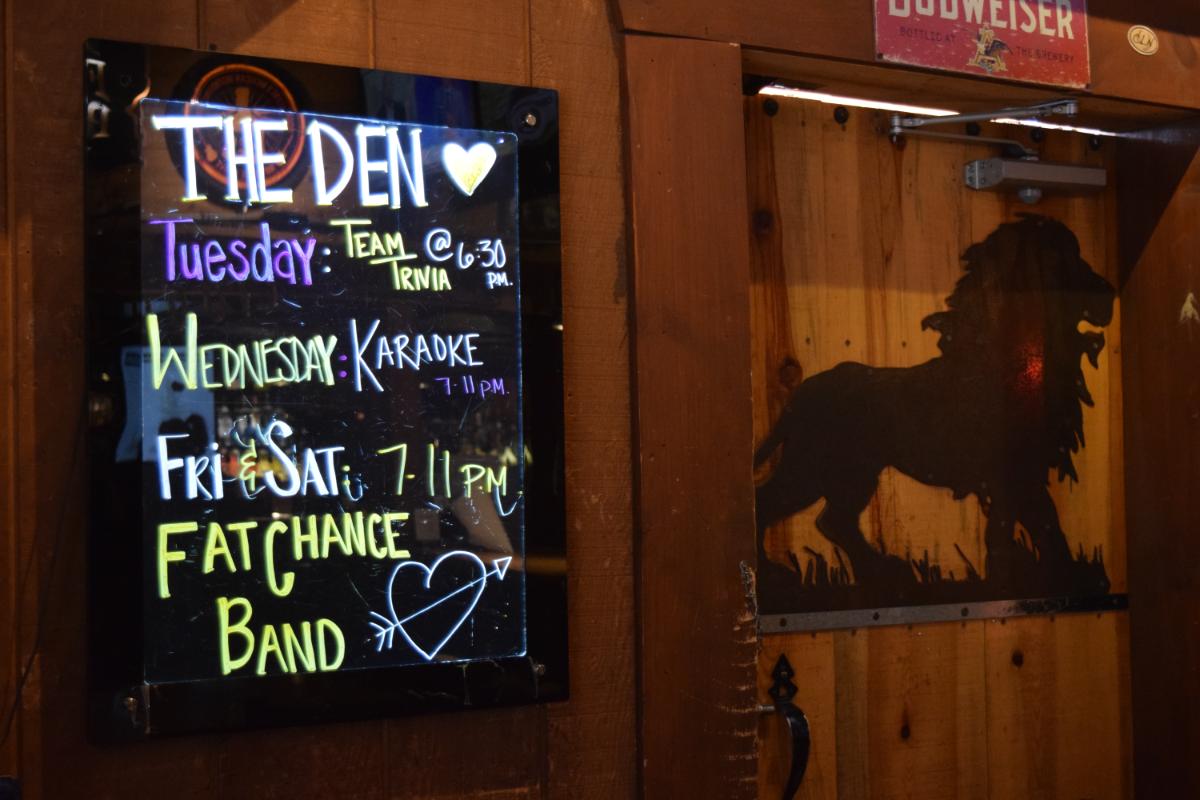 THE DEN
Tuesday: TEAM TRIVIA @ 6:30 P.M.
WEDNESDAY: KARAOKE
7-11 P.M.
FRI & SAT: 7-11 PM
FAT CHANCE
BAND
BUDWEISER
BOTTLED AT THE BREWERY